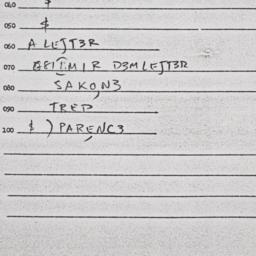 040 $
050 $
060 A LEJT3R
070 GEITMIR D3MLEJT3R
080 SAKON3
090 TRED
100 $ ) PARENC3